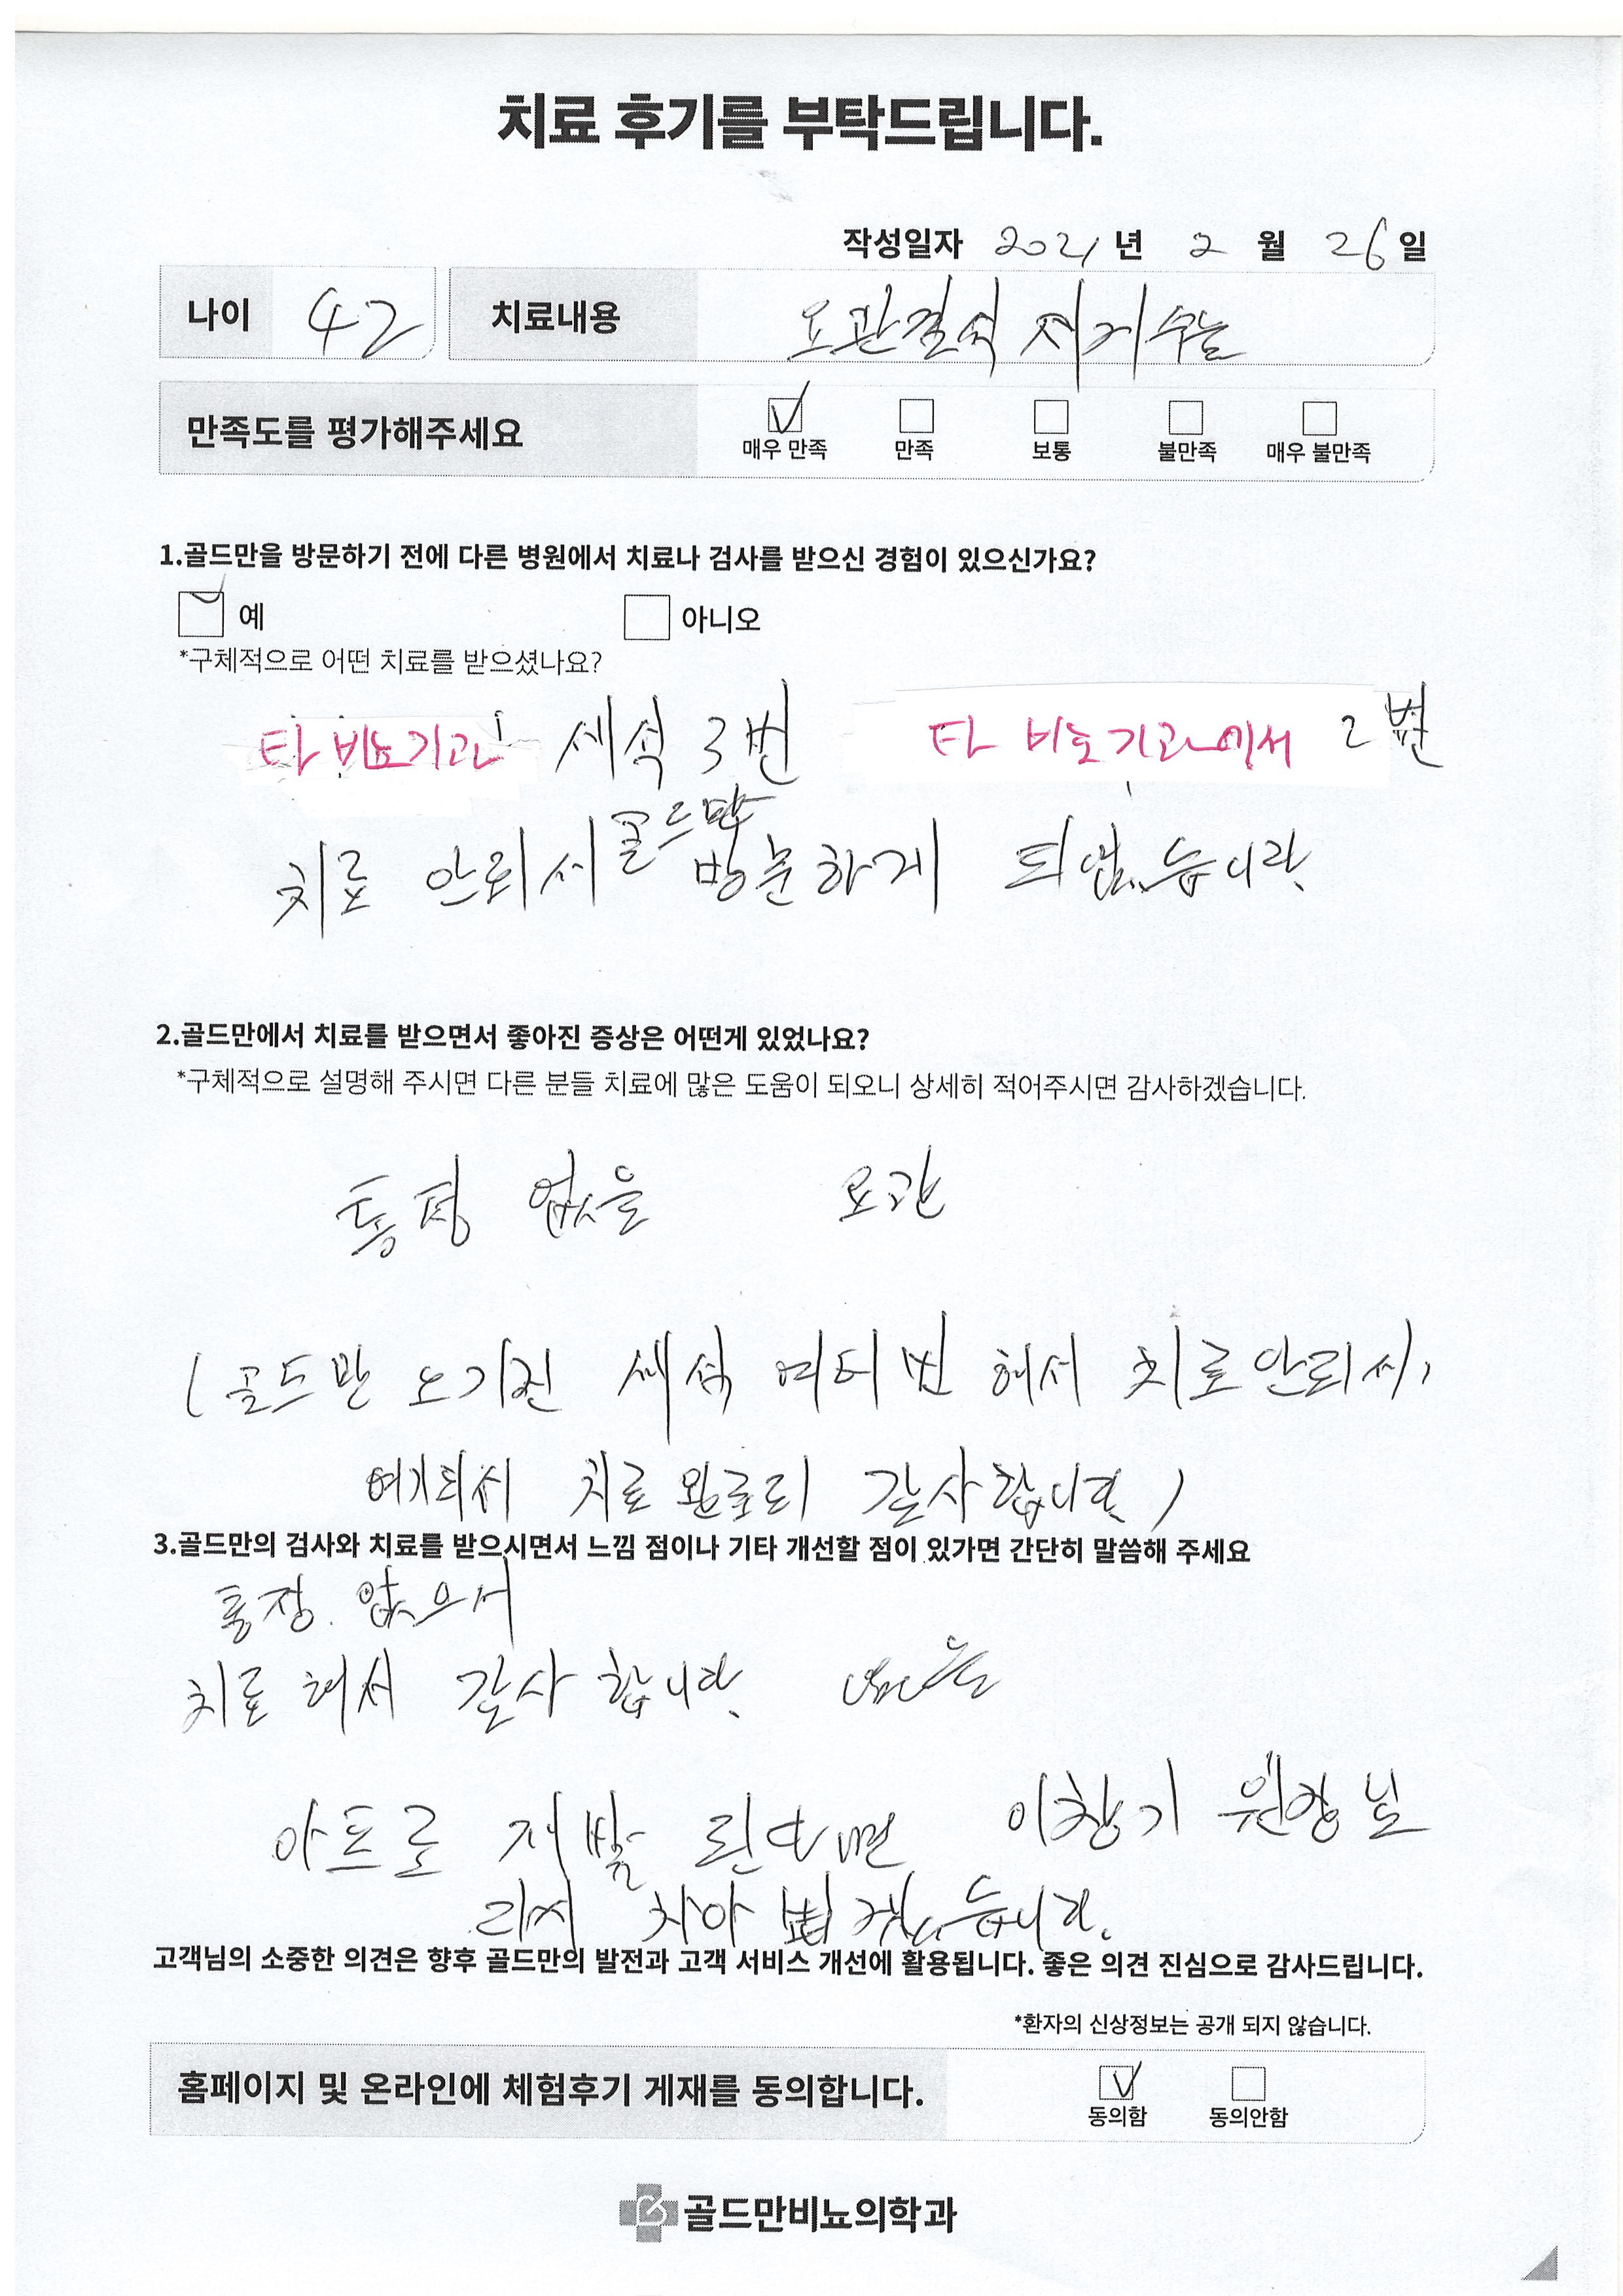 치료 후기를 부탁드립니다.
작성일자 2021년 2월 26일
나이 42 치료내용 요관결석 제거수술
만족도를 평가해주세요
매우 만족 만족 보통 불만족 매우 불만족
1.골드만을 방문하기 전에 다른 병원에서 치료나 검사를 받으신 경험이 있으신가요?
예 아니오
*구체적으로 어떤 치료를 받으셨나요?
타 비뇨기과 쇄석 3번 타 비뇨기과에서 2번
치료 안되서 골드만 방문하게 되었습니다.
2.골드만에서 치료를 받으면서 좋아진 증상은 어떤게 있었나요?
*구체적으로 설명해 주시면 다른 분들 치료에 많은 도움이 되오니 상세히 적어주시면 감사하겠습니다.
통정 없음 요관
(골드만 오기전 쇄석 여러번 해서 치료안되서,
치료 완료되 감사합니다)
3.골드만의 검사와 치료를 받으시면서 느낌 점이나 기타 개선할 점이 있가면 간단히 말씀해 주세요
통정 없으서
치료해서 감사합니다.
아프로 재발 된다면 이창기 원장님
다시 차아 뵙겠습니다.
고객님의 소중한 의견은 향후 골드만의 발전과 고객 서비스 개선에 활용됩니다. 좋은 의견 진심으로 감사드립니다.
*환자의 신상정보는 공개 되지 않습니다.
홈페이지 및 온라인에 체험후기 게재를 동의합니다.
동의함 동의안함
골드만비뇨의학과